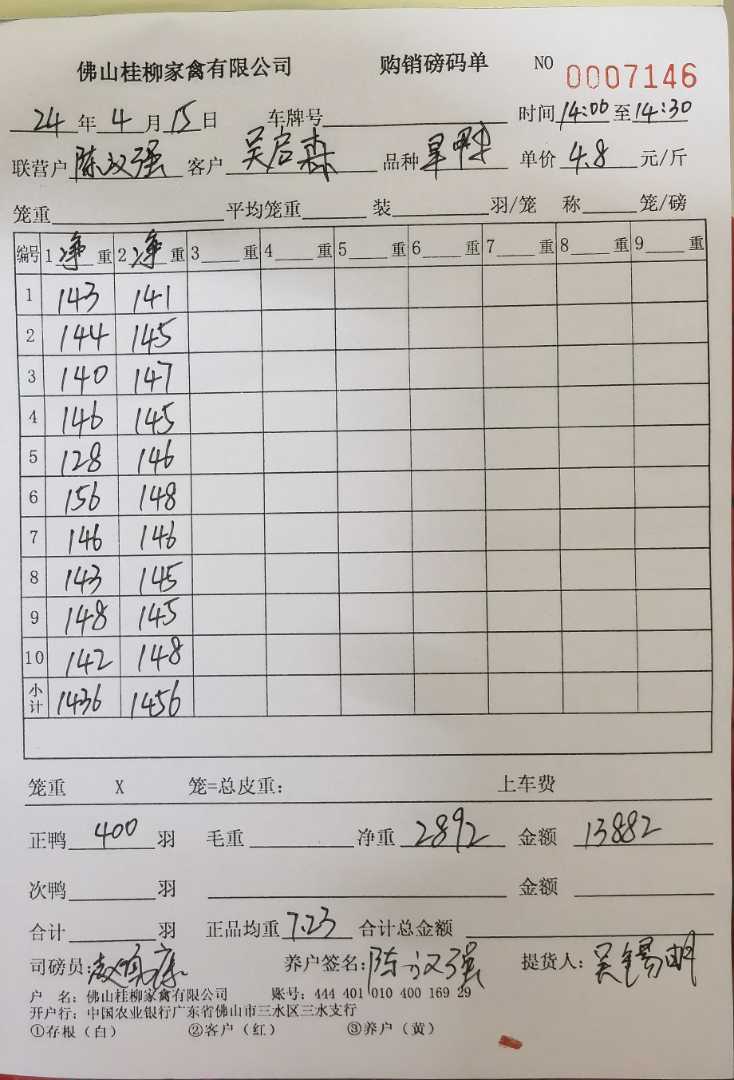 佛山桂柳家禽有限公司 购销磅码单 NO 0007146
24年4月15日 车牌号 时间14:00至14:30
联营户 陈汉强 客户 吴启森 品种 单价 4.8 元/斤
笼重 平均笼重 装 羽/笼 称 笼/磅
编号 1净重 2净重 3重 4重 5重 6重 7重 8重 9重
1 143 141
2 144 145
3 140 147
4 146 145
5 128 146
6 156 148
7 146 146
8 143 145
9 148 145
10 142 148
小计 1436 1456
笼重 X 笼=总皮重: 上车费
正鸭 400 羽 毛重 净重 2892 金额 13882
次鸭 羽 金额
合计 羽 正品均重 7.23 合计总金额
司磅员: 养户签名: 陈汉强 提货人: 吴锡明
户 名: 佛山桂柳家禽有限公司 账号: 444 401 010 400 169 29
开户行: 中国农业银行广东省佛山市三水区三水支行
①存根(白) ②客户(红) ③养户(黄)